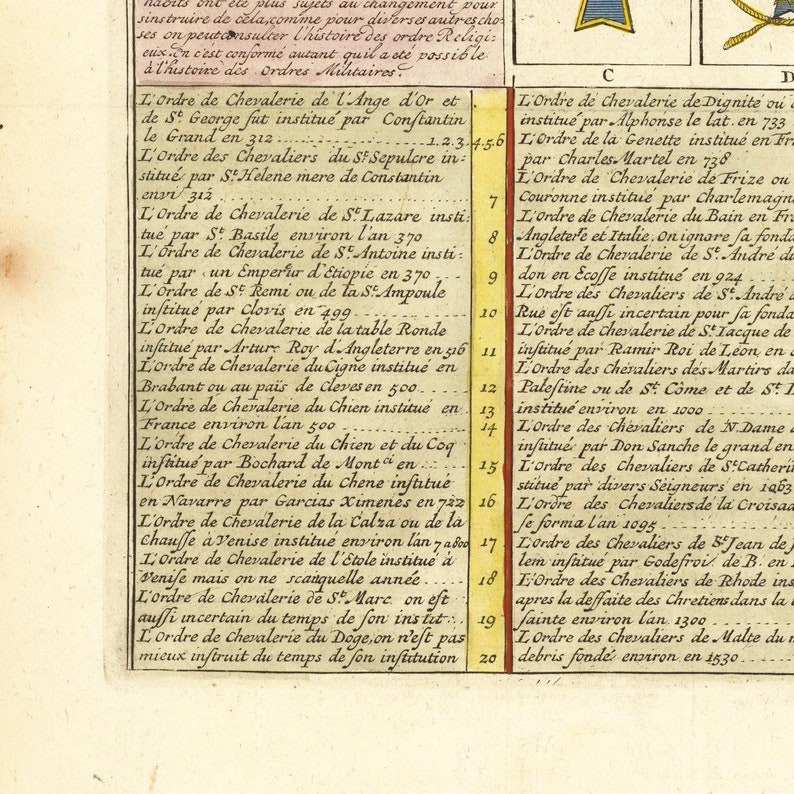 habits ont été plus sujets au changement pour
s'instruire de cela, comme pour diverses autres cho-
ses on peut consulter l'histoire des ordre Religi-
eux. On c'est conformé autant qu'il a eté possible
à l'histoire des Ordres Militaires.
C
D
L'Ordre de Chevalerie de l'Ange d'Or et
de St. George fut institué par Constantin
le Grand en 312 1.2.3. 4.5.6
L'Ordre des Chevaliers du St. Sepulcre in-
stitué par Ste. Helene mere de Constantin
envi 312 7
L'Ordre de Chevalerie de St. Lazare insti-
tué par St. Basile environ l'an 370 8
L'Ordre de Chevalerie de St. Antoine insti-
tué par un Emperur d'Etiopie en 370 9
L'Ordre de St. Remi ou de la Ste. Ampoule
institué par Clovis en 499 10
L'Ordre de Chevalerie de la table Ronde
institué par Artur Roy d'Angleterre en 516 11
L'Ordre de Chevalerie du Cigne institué en
Brabant ou au païs de Cleves en 500 12
L'Ordre de Chevalerie du Chien institué en 13
France environ l'an 500 14
L'Ordre de Chevalerie du Chien et du Coq
institué par Bochard de Mont.ci en 15
L'Ordre de Chevalerie du Chene institué
en Navarre par Garcias Ximenes en 722 16
L'Ordre de Chevalerie de la Calza ou de la
Chausse à Venise institué environ l'an 7 a 800 17
L'Ordre de Chevalerie de l'Etole institué à
Venise mais on ne sçait quelle année 18
L'Ordre de Chevalerie de St. Marc. on est
aussi incertain du tems de son instit 19
L'Ordre de Chevalerie du Doge, on n'est pas
mieux instruit du temps de son institution 20
L'Ordre de Chevalerie de Dignité ou
institué par Alphonse le lat. en 733
L'Ordre de la Genette institué en Fr
par Charles Martel en 738
L'Ordre de Chevalerie de Frize ou
Couronne institué par Charlemagn
L'Ordre de Chevalerie du Bain en Fr
Angleterre et Italie. On ignore sa fonda
L'Ordre de Chevalerie de St. André du
don en Ecosse institué en 924
L'Ordre des Chevaliers de St. André d
Rue est aussi incertain pour sa fonda
L'Ordre de Chevalerie de St. Iacque de
institué par Ramir Roi de Leon, en
L'Ordre des Chevaliers des Martirs da
Palestine ou de St. Côme et de St.
institué environ en 1000
L'Ordre des Chevaliers de N. Dame
institué par Don Sanche le grand en
L'Ordre des Chevaliers de St. Catherin
stitué par divers Seigneurs en 1063
L'Ordre des Chevaliers de la Croisad
se forma l'an 1095
L'Ordre des Chevaliers de St. Jean de J
lem institué par Godefroi de B. en
L'Ordre des Chevaliers de Rhode ins
apres la deffaite des Chretiens dans la
sainte environ l'an 1300
L'Ordre des Chevaliers de Malte du
debris fondé environ en 1530